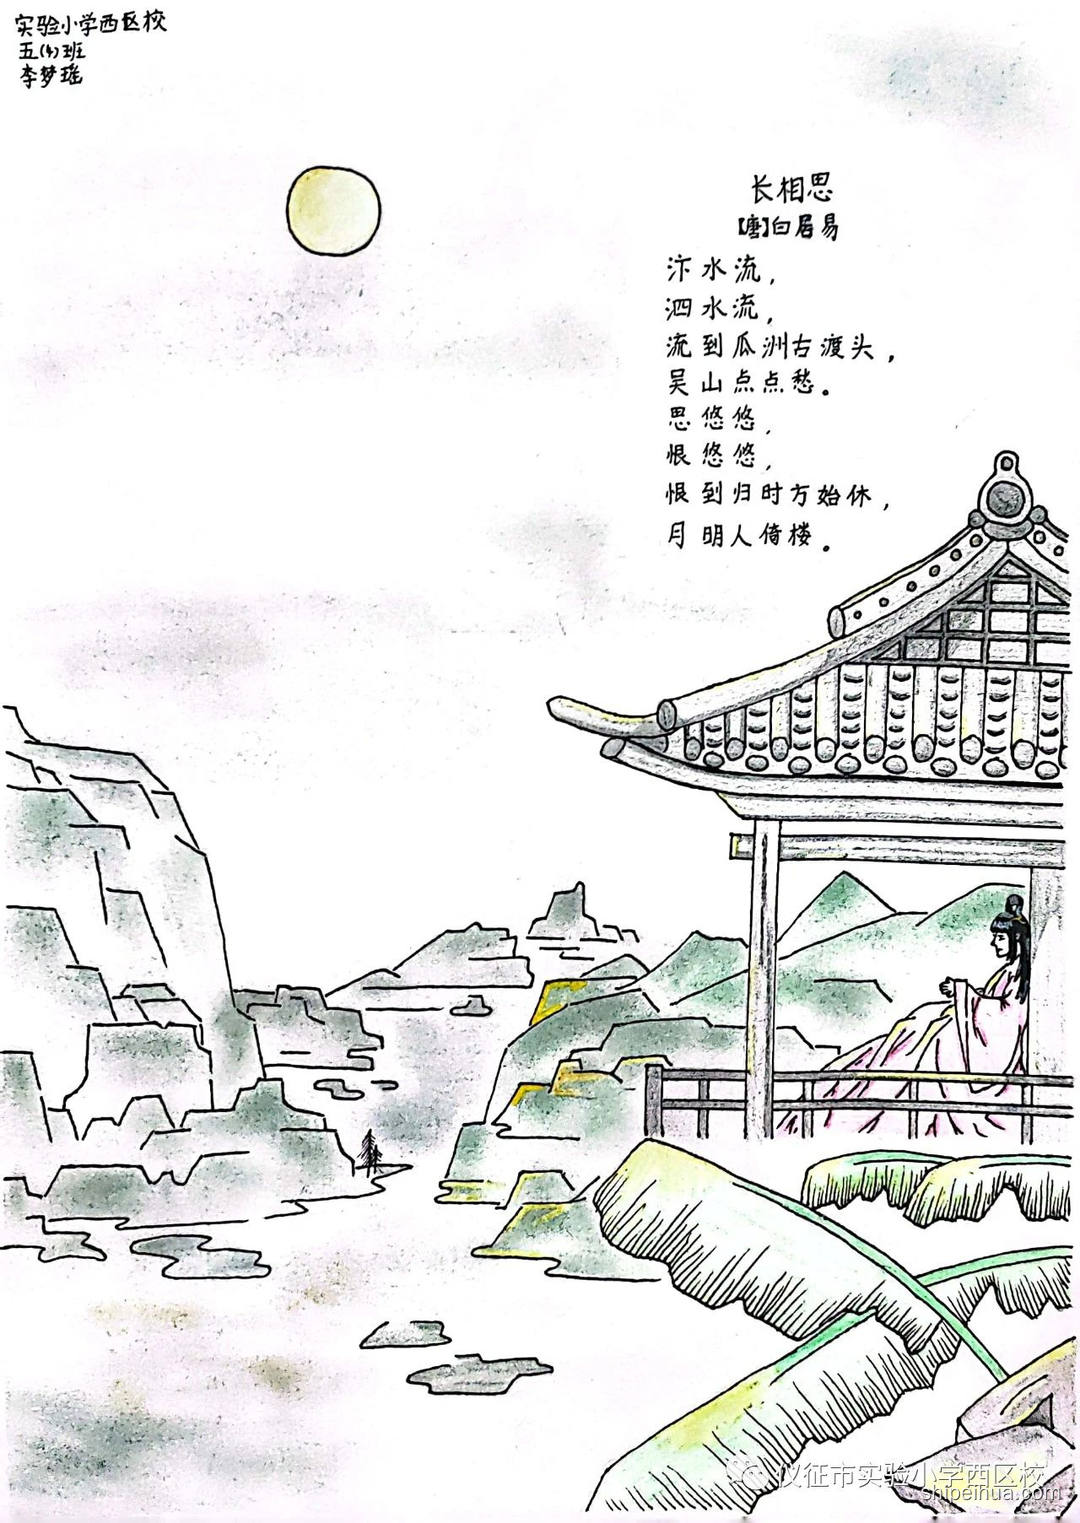 实验小学西区校
五(4)班
李梦瑶
长相思
【唐】白居易
汴水流，
泗水流，
流到瓜洲古渡头，
吴山点点愁。
思悠悠，
恨悠悠，
恨到归时方始休，
月明人倚楼。
仪征市实验小学西区校
shipeihua.com